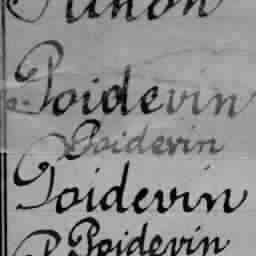 Poidevin
Poidevin
Poidevin
Poidevin